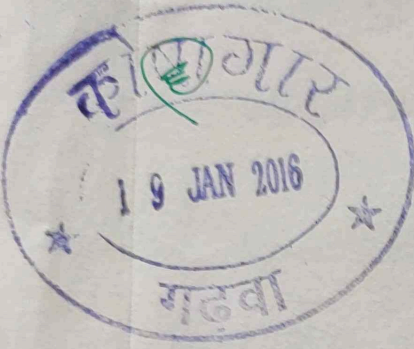 कोषागार
19 JAN 2016
गढ़वा